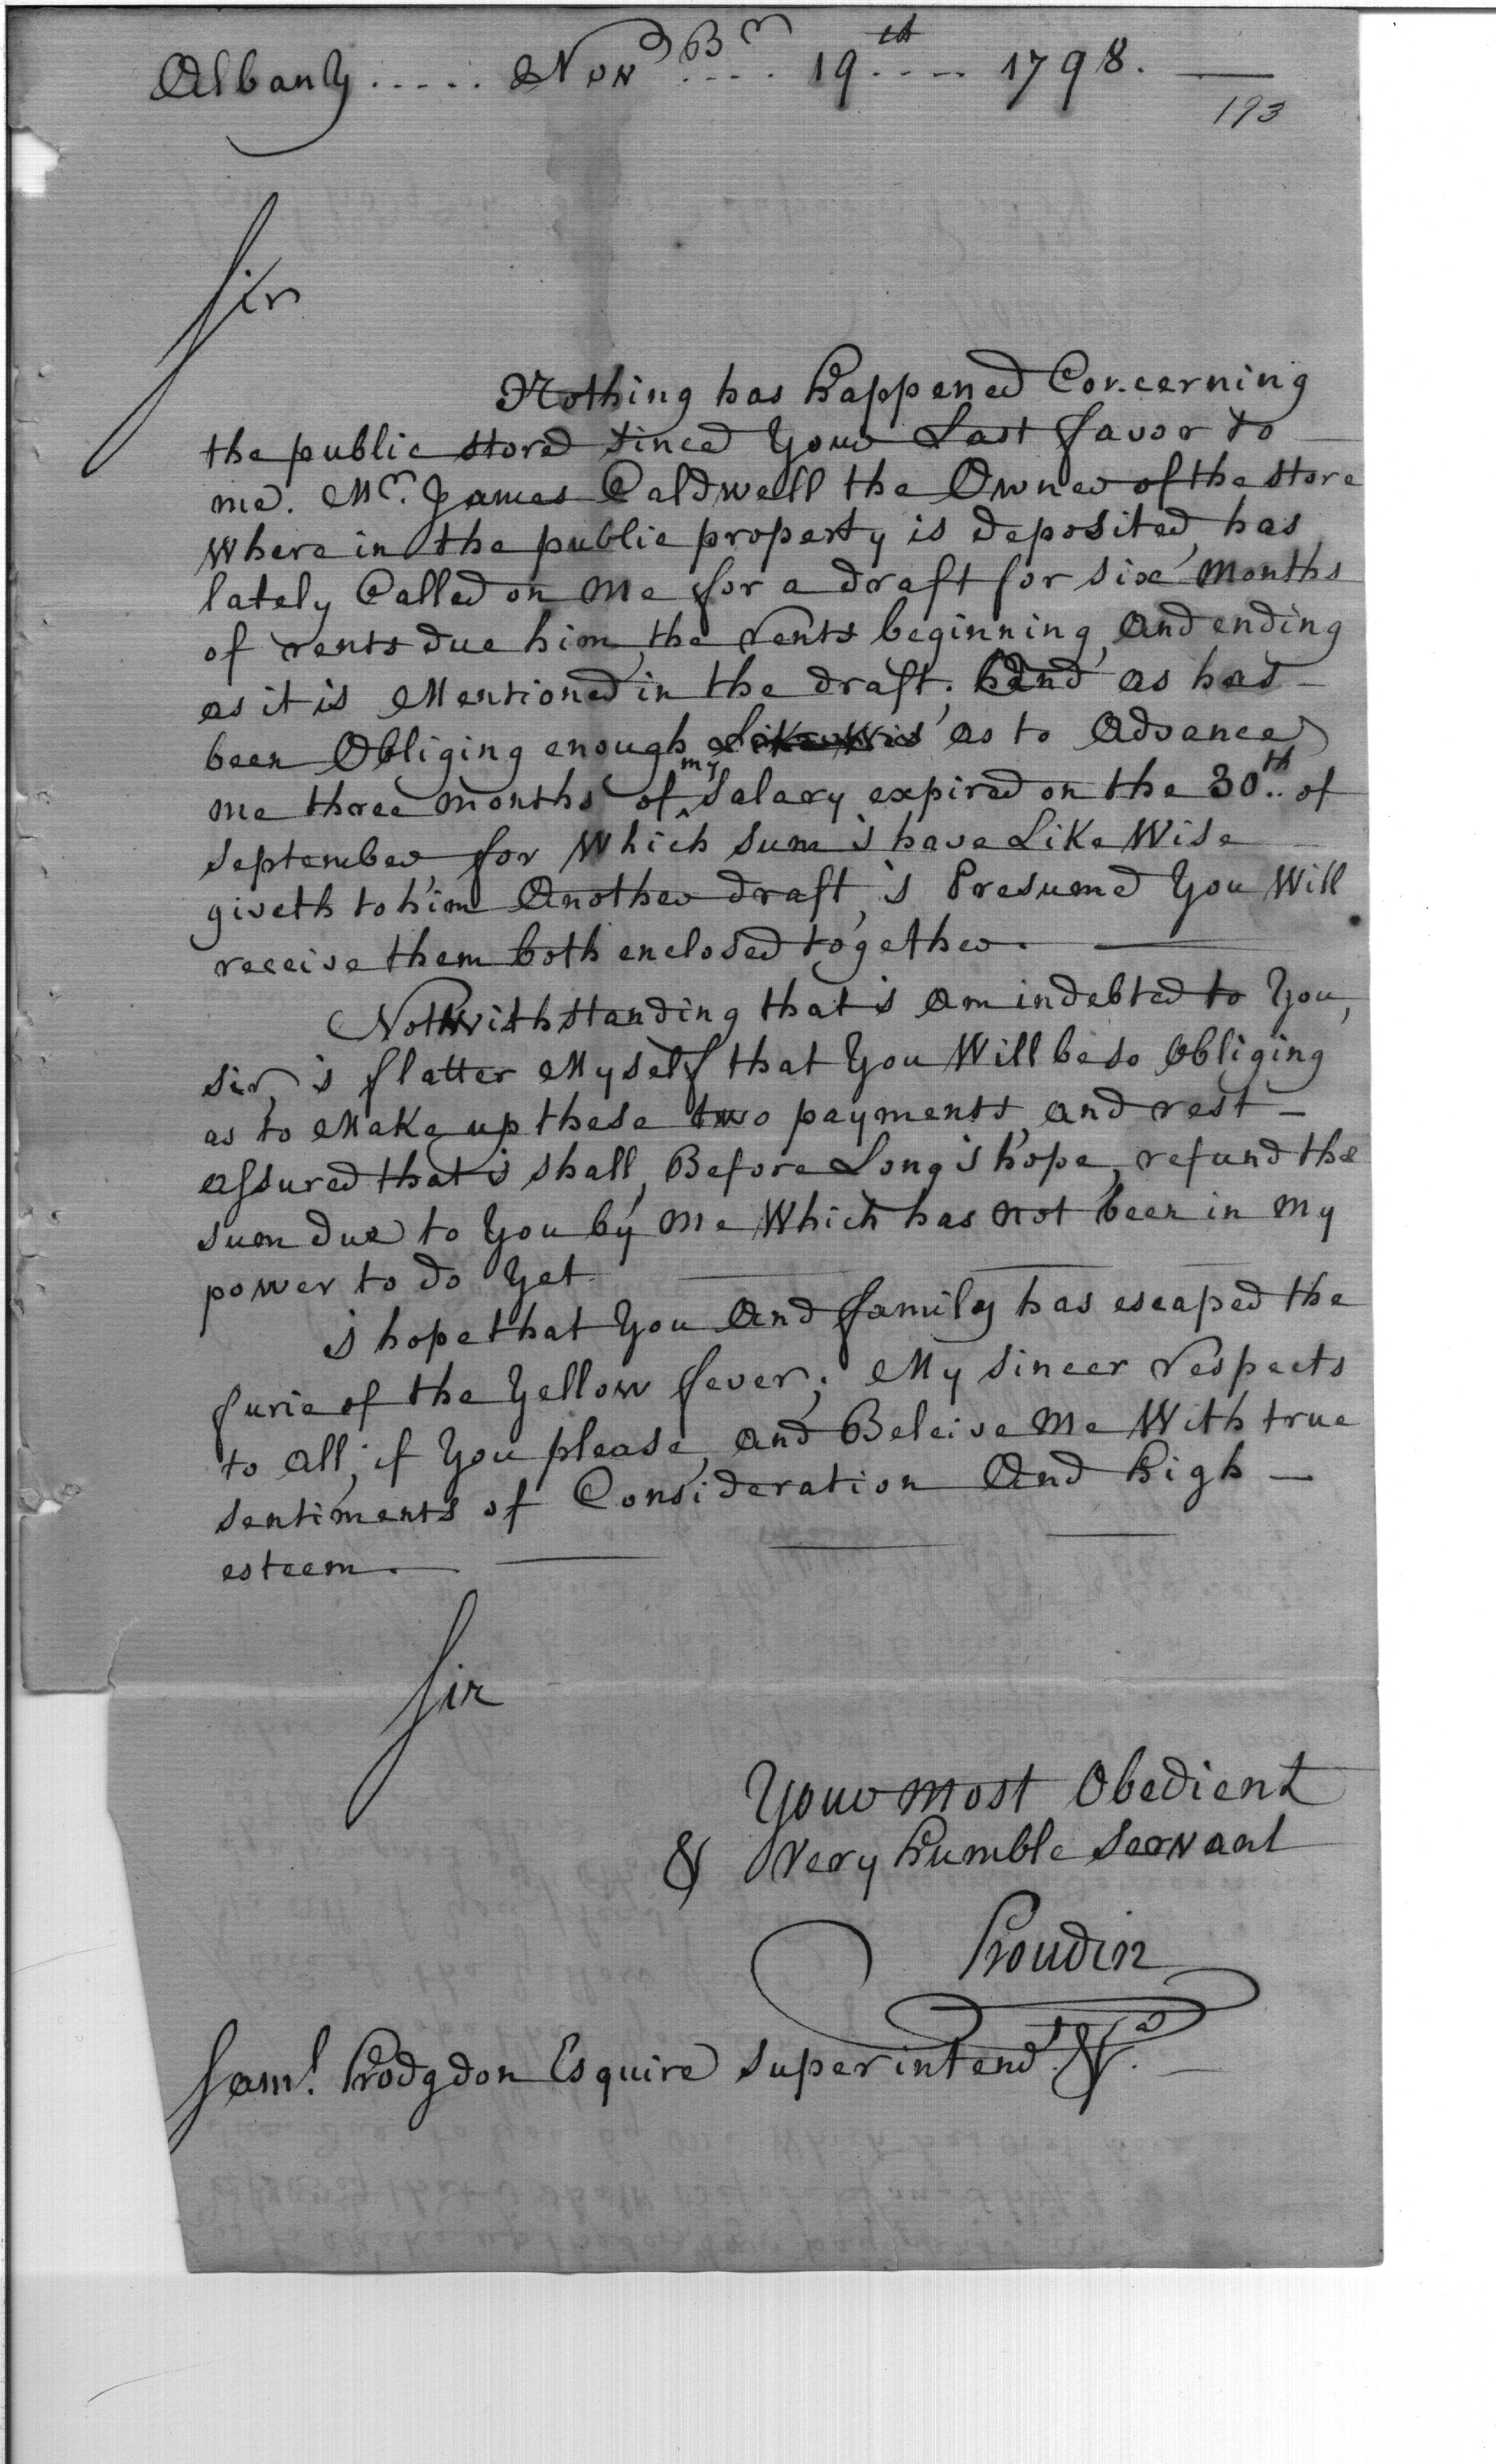 Albany ..... Nov^Br .... 19th .... 1798.
193
Sir
Nothing has happened Concerning
the public store since Your Last favor to
me. Mr. James Caldwell the Owner of the store
where in the public property is deposited, has
lately Called on Me for a draft for six Months
of rents due him, the rents beginning, And ending
as it is Mentioned in the draft; And as has
been Obliging enough likewise as to Advance
me three months of my salary expired on the 30th.. of
september, for Which sum i have Like Wise
giveth to him Another draft, i Presume You Will
receive them both enclosed together.
Notwithstanding that i Am indebted to You,
sir, i flatter Myself that You Will be so Obliging
as to Make up these two payments, and rest
assured that i shall, Before Long i hope, refund the
sum due to You by Me Which has not been in My
power to do Yet
i hope that You And family has escaped the
furie of the Yellow fever; My sincer respects
to All, if You please, and Beleive Me With true
sentiments of Consideration And high
esteem.
Sir
Your Most Obedient
& Very humble servant
Houdin
Saml. Hodgdon Esquire superintendt. &ca.